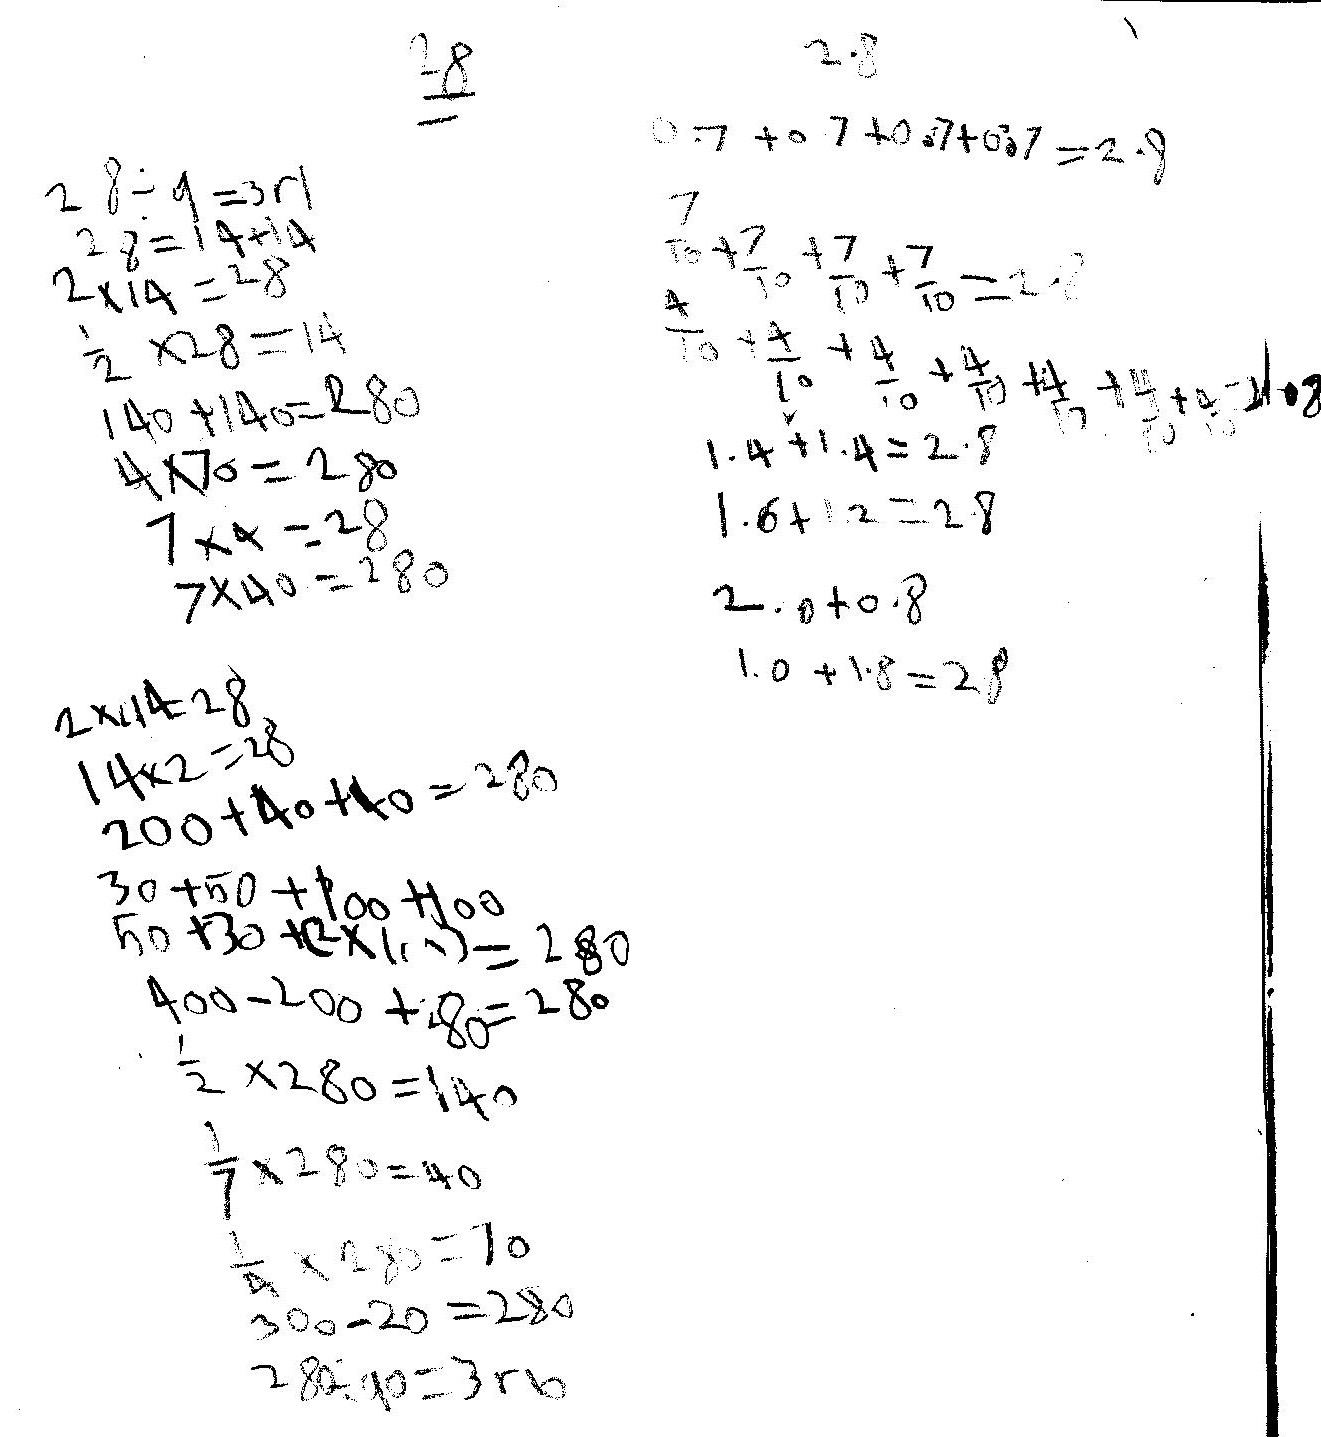 28
28÷9=3r1
28=14+14
2×14=28
1/2 ×28=14
140+140=280
4×70=280
7×4=28
7×40=280
2×14=28
14×2=28
200+40+40=280
30+50+100+100
50+30+(2×100)=280
400-200+80=280
1/2 ×280=140
1/7 ×280=40
1/4 ×280=70
300-20=280
280÷90=3r10
2.8
0.7+0.7+0.7+0.7=2.8
7/10+7/10+7/10+7/10=2.8
4/10+4/10+4/10+4/10+4/10+4/10+4/10=
1.4+1.4=2.8
1.6+1.2=2.8
2.0+0.8
1.0+1.8=2.8